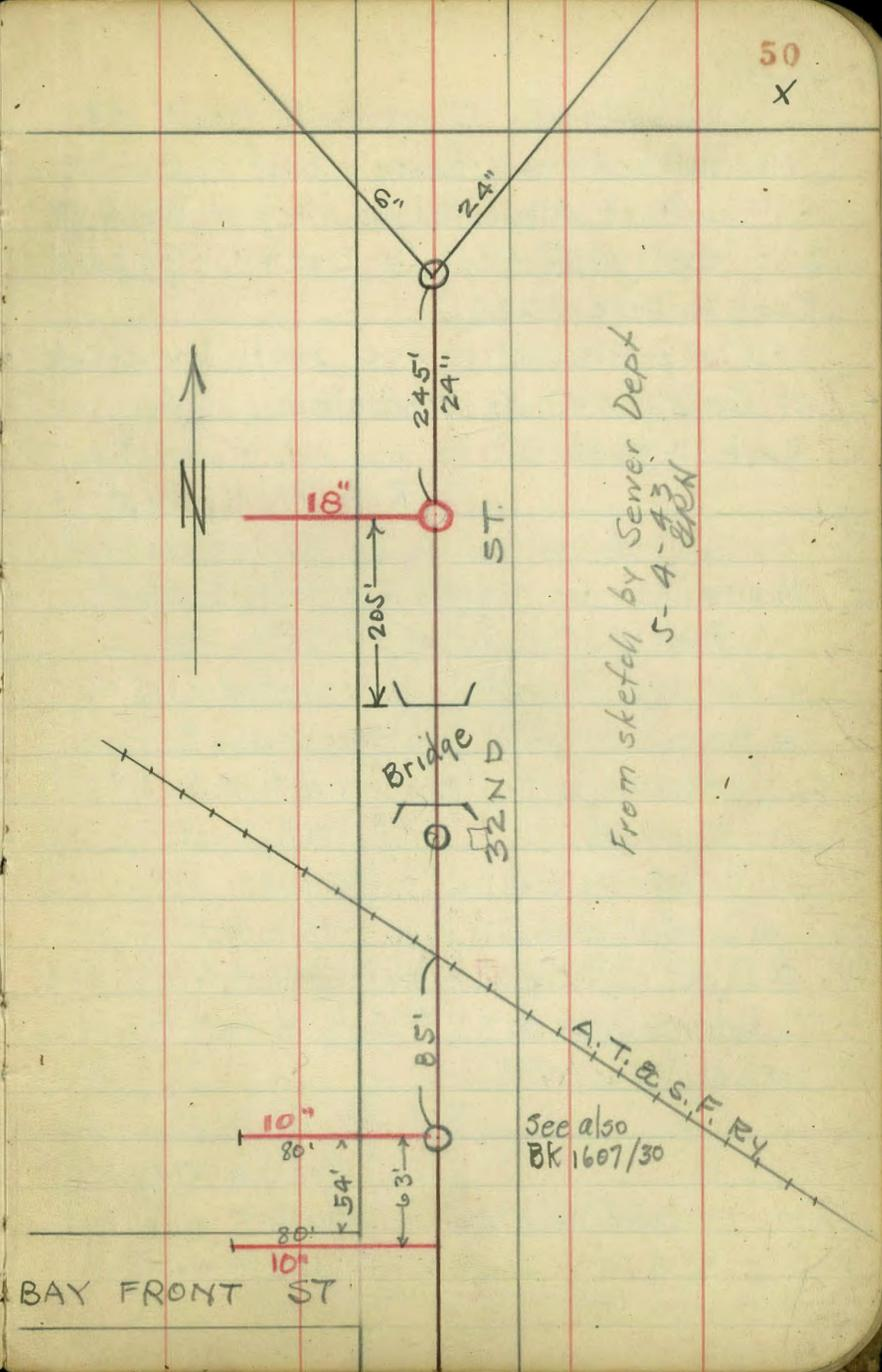 50
X
6"
24"
245'
24"
N
18"
ST.
205'
From sketch by Sewer Dept
5-4-43
ERN
Bridge
32ND
85'
A. T. & S. F. Ry
10"
80'
See also
BK 1607/30
54'
63'
80'
10"
BAY FRONT ST